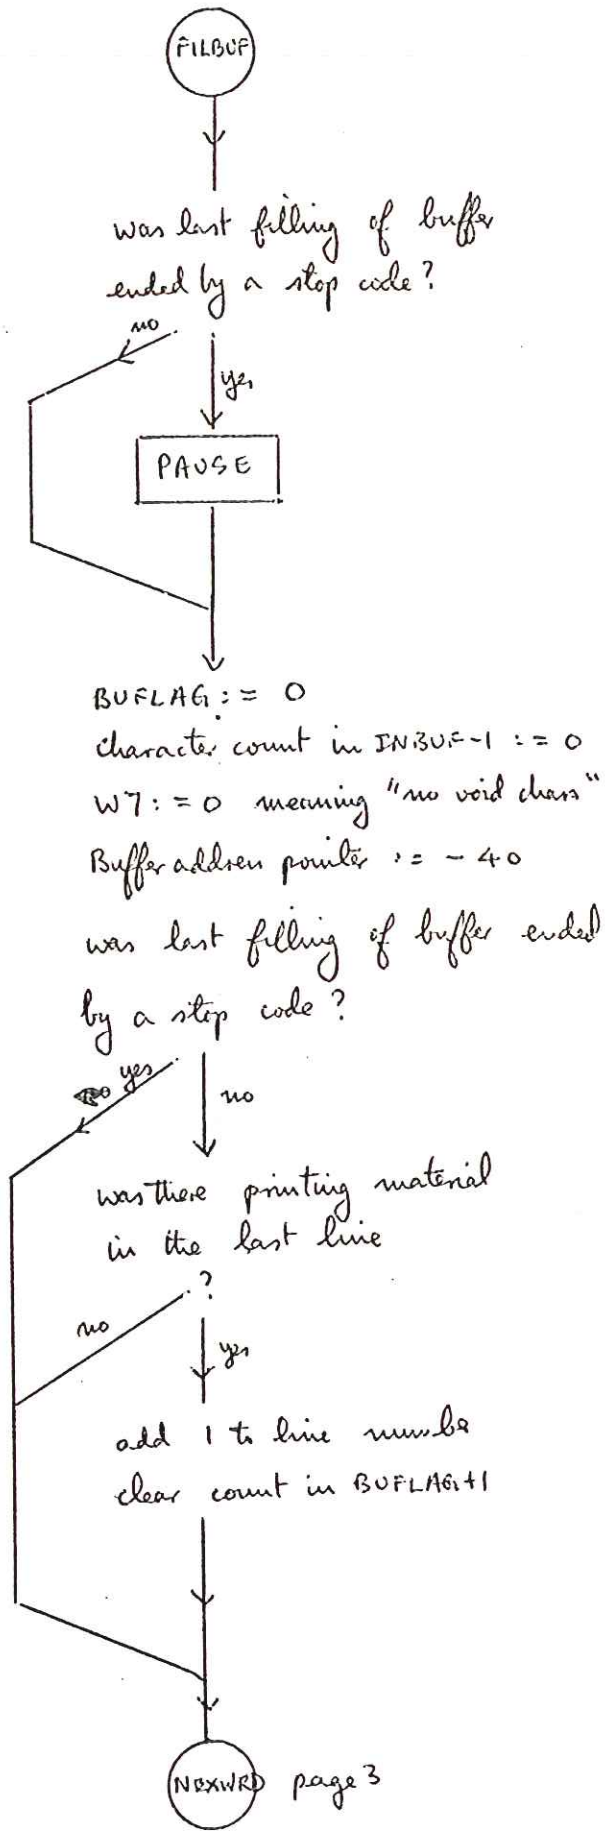 FILBUF
was last filling of buffer
ended by a stop code?
no
yes
PAUSE
BUFLAG := 0
character count in INBUF-1 := 0
W7 := 0 meaning "no void chars"
Buffer address pointer := -40
was last filling of buffer ended
by a stop code?
yes
no
was there printing material
in the last line
?
no
yes
add 1 to line number
clear count in BUFLAG+1
page 3